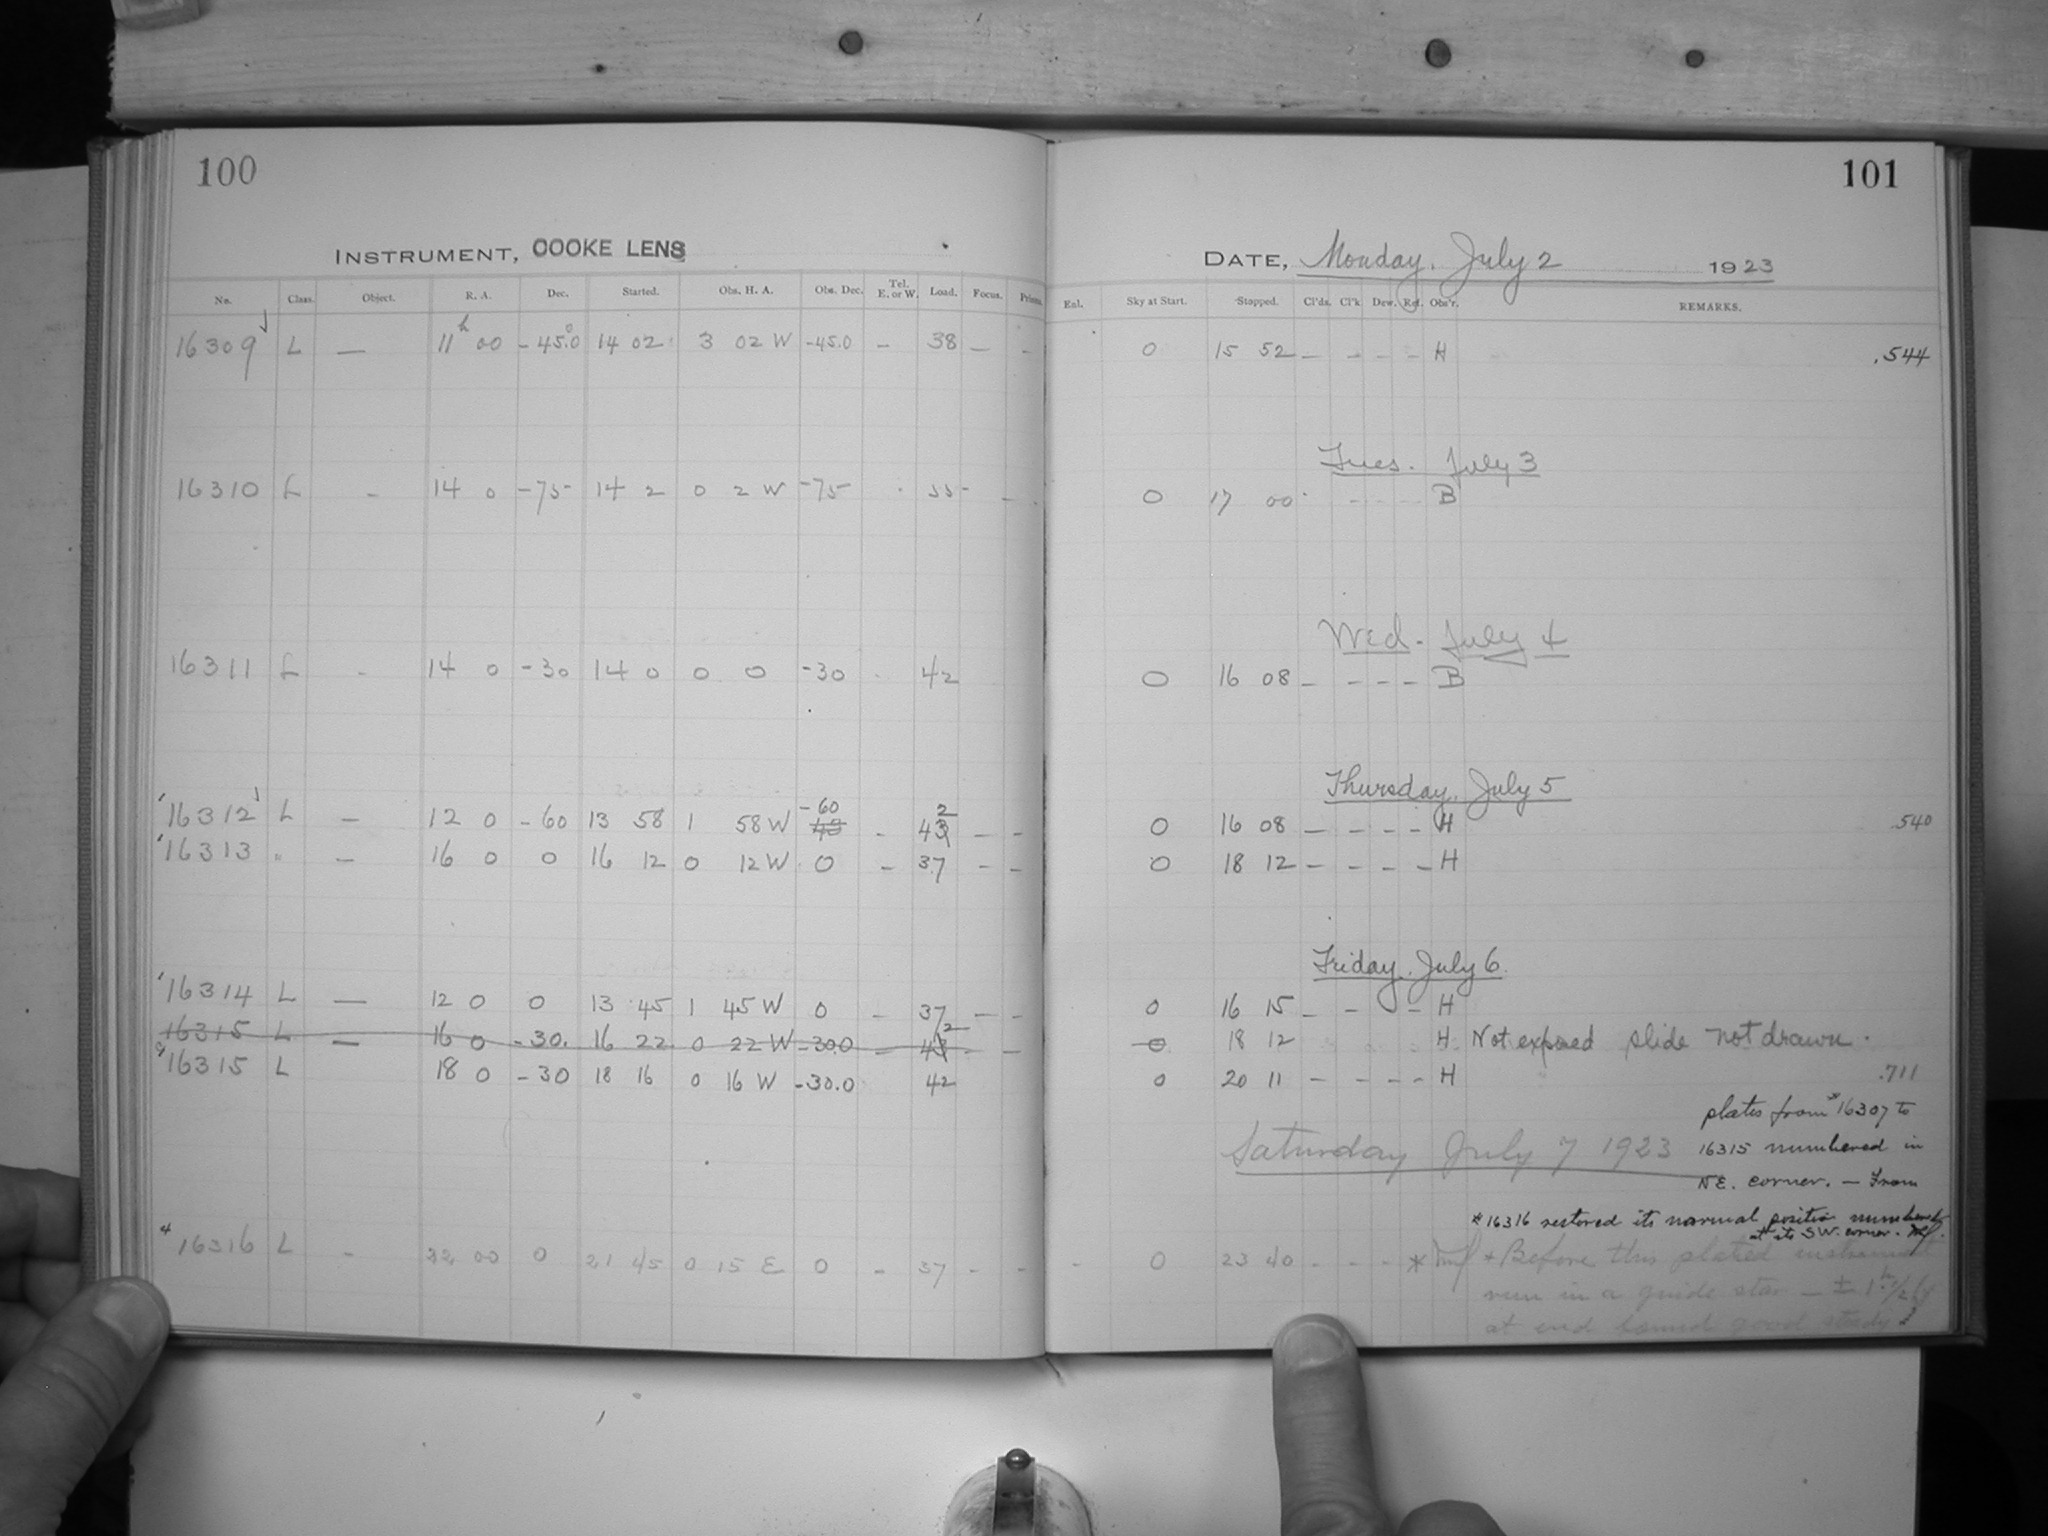 100
101
INSTRUMENT, COOKE LENS
DATE, Monday, July 2 1923
No. Class. Object. R. A. Dec. Started. Obs. H. A. Obs. Dec. Tel. E. or W. Load. Focus. Prisms. Enl. Sky at Start. Stopped. Cl'ds. Cl'k Dew. Ref. Obs'r. REMARKS.
16309 L — 11h 00 -45.0° 14 02 3 02 W -45.0 - 38 — - 0 15 52 — - - - H .544
Tues. July 3
16310 L - 14 0 -75 14 2 0 2 W -75 - 55 - - 0 17 00 - - - B
Wed. July 4
16311 L - 14 0 -30 14 0 0 0 -30 42 0 16 08 — - - - B
Thursday, July 5
16312 L — 12 0 -60 13 58 1 58 W -60 - 42 - - 0 16 08 — - - - H .540
16313 " — 16 0 0 16 12 0 12 W 0 - 37 - - 0 18 12 — - - - H
Friday, July 6
16314 L — 12 0 0 13 45 1 45 W 0 - 37 — - 0 16 15 — - - H
16315 L — 16 0 -30. 16 22 0 22 W -30.0 - 42 - - 0 18 12 H Not exposed slide not drawn.
16315 L 18 0 -30 18 16 0 16 W -30.0 42 0 20 11 - - - - H .711
plates from *16307 to
Saturday July 7 1923
16315 numbered in
N.E. corner. — From
*16316 restored its normal position numbered
at its SW. corner.
16316 L - 22 00 0 21 45 0 15 E 0 - 37 - - - 0 23 40 - - - * + Before this plated instrument
run in a guide star — ± 1h 1/2
at end found good steady